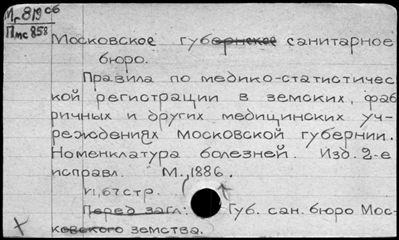 М 819 сб
Пмс 858
Московское губернское санитарное
бюро.
Правила по медико-статистичес
кой регистрации в земских, фаб
ричных и других медицинских уч-
реждениях Московской губернии.
Номенклатура болезней. Изд. 2-е
исправл. М., 1886.
67 стр.
Перед загл.: Губ. сан. бюро Мос-
ковского земства.